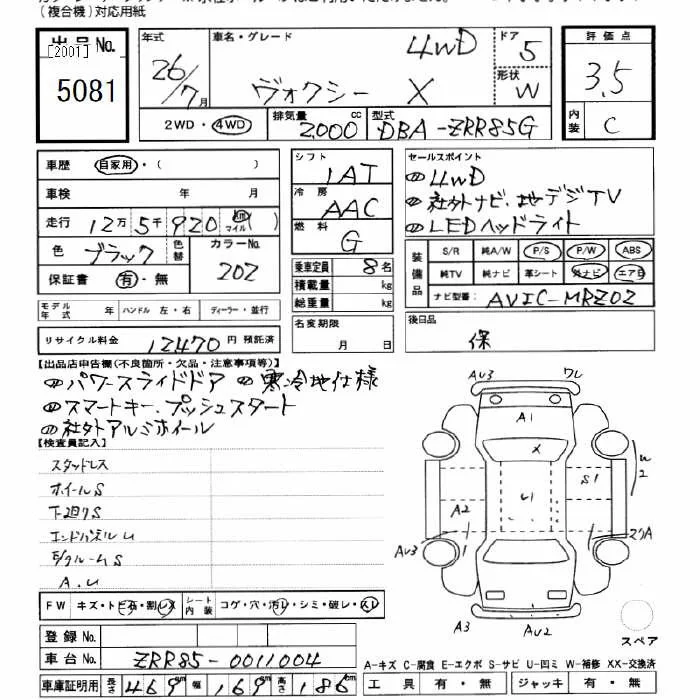 (複合機)対応用紙
出品No.
[2001]
5081
年式 26/7月
車名・グレード ヴォクシー X 4WD
ドア 5
形状 W
評価点 3.5
内装 C
2WD・4WD
排気量 2000 cc
型式 DBA-ZRR85G
車歴 自家用・( )
車検 年 月
走行 12万5千920 km マイル( )
色 ブラック 色替 カラーNo. 202
保証書 有・無
モデル年式 ハンドル 左・右 ディーラー・並行
リサイクル料金 12470 円 預託済
シフト IAT
冷房 AAC
燃料 G
乗車定員 8名
積載量 kg
総重量 kg
名変期限 月 日
セールスポイント
4WD
社外ナビ.地デジTV
LEDヘッドライト
装備品 S/R 純A/W P/S P/W ABS
純TV 純ナビ 革シート 外ナビ エアB
ナビ型番 AVIC-MRZ02
後日品
保
【出品店申告欄(不良箇所・欠品・注意事項等)】
パワースライドドア 寒冷地仕様
スマートキー.プッシュスタート
社外アルミホイール
【検査員記入】
スタッドレス
ホイールS
下廻りS
エンドパネルU
E/グルームS
A.U
AV3 ワレ
A1
X
U1
S1
W2
A2
1
マクリA
AV3
A3
AV2
スペア
FW キズ・トビ石・割レ・ス シート内装 コゲ・穴・汚レ・シミ・破レ・スレ
登録No.
車台No. ZRR85-0011004
車庫証明用 長さ 469cm 幅 169cm 高さ 186cm
A-キズ C-腐食 E-エクボ S-サビ U-凹ミ W-補修 XX-交換済
工具 有・無 ジャッキ 有・無